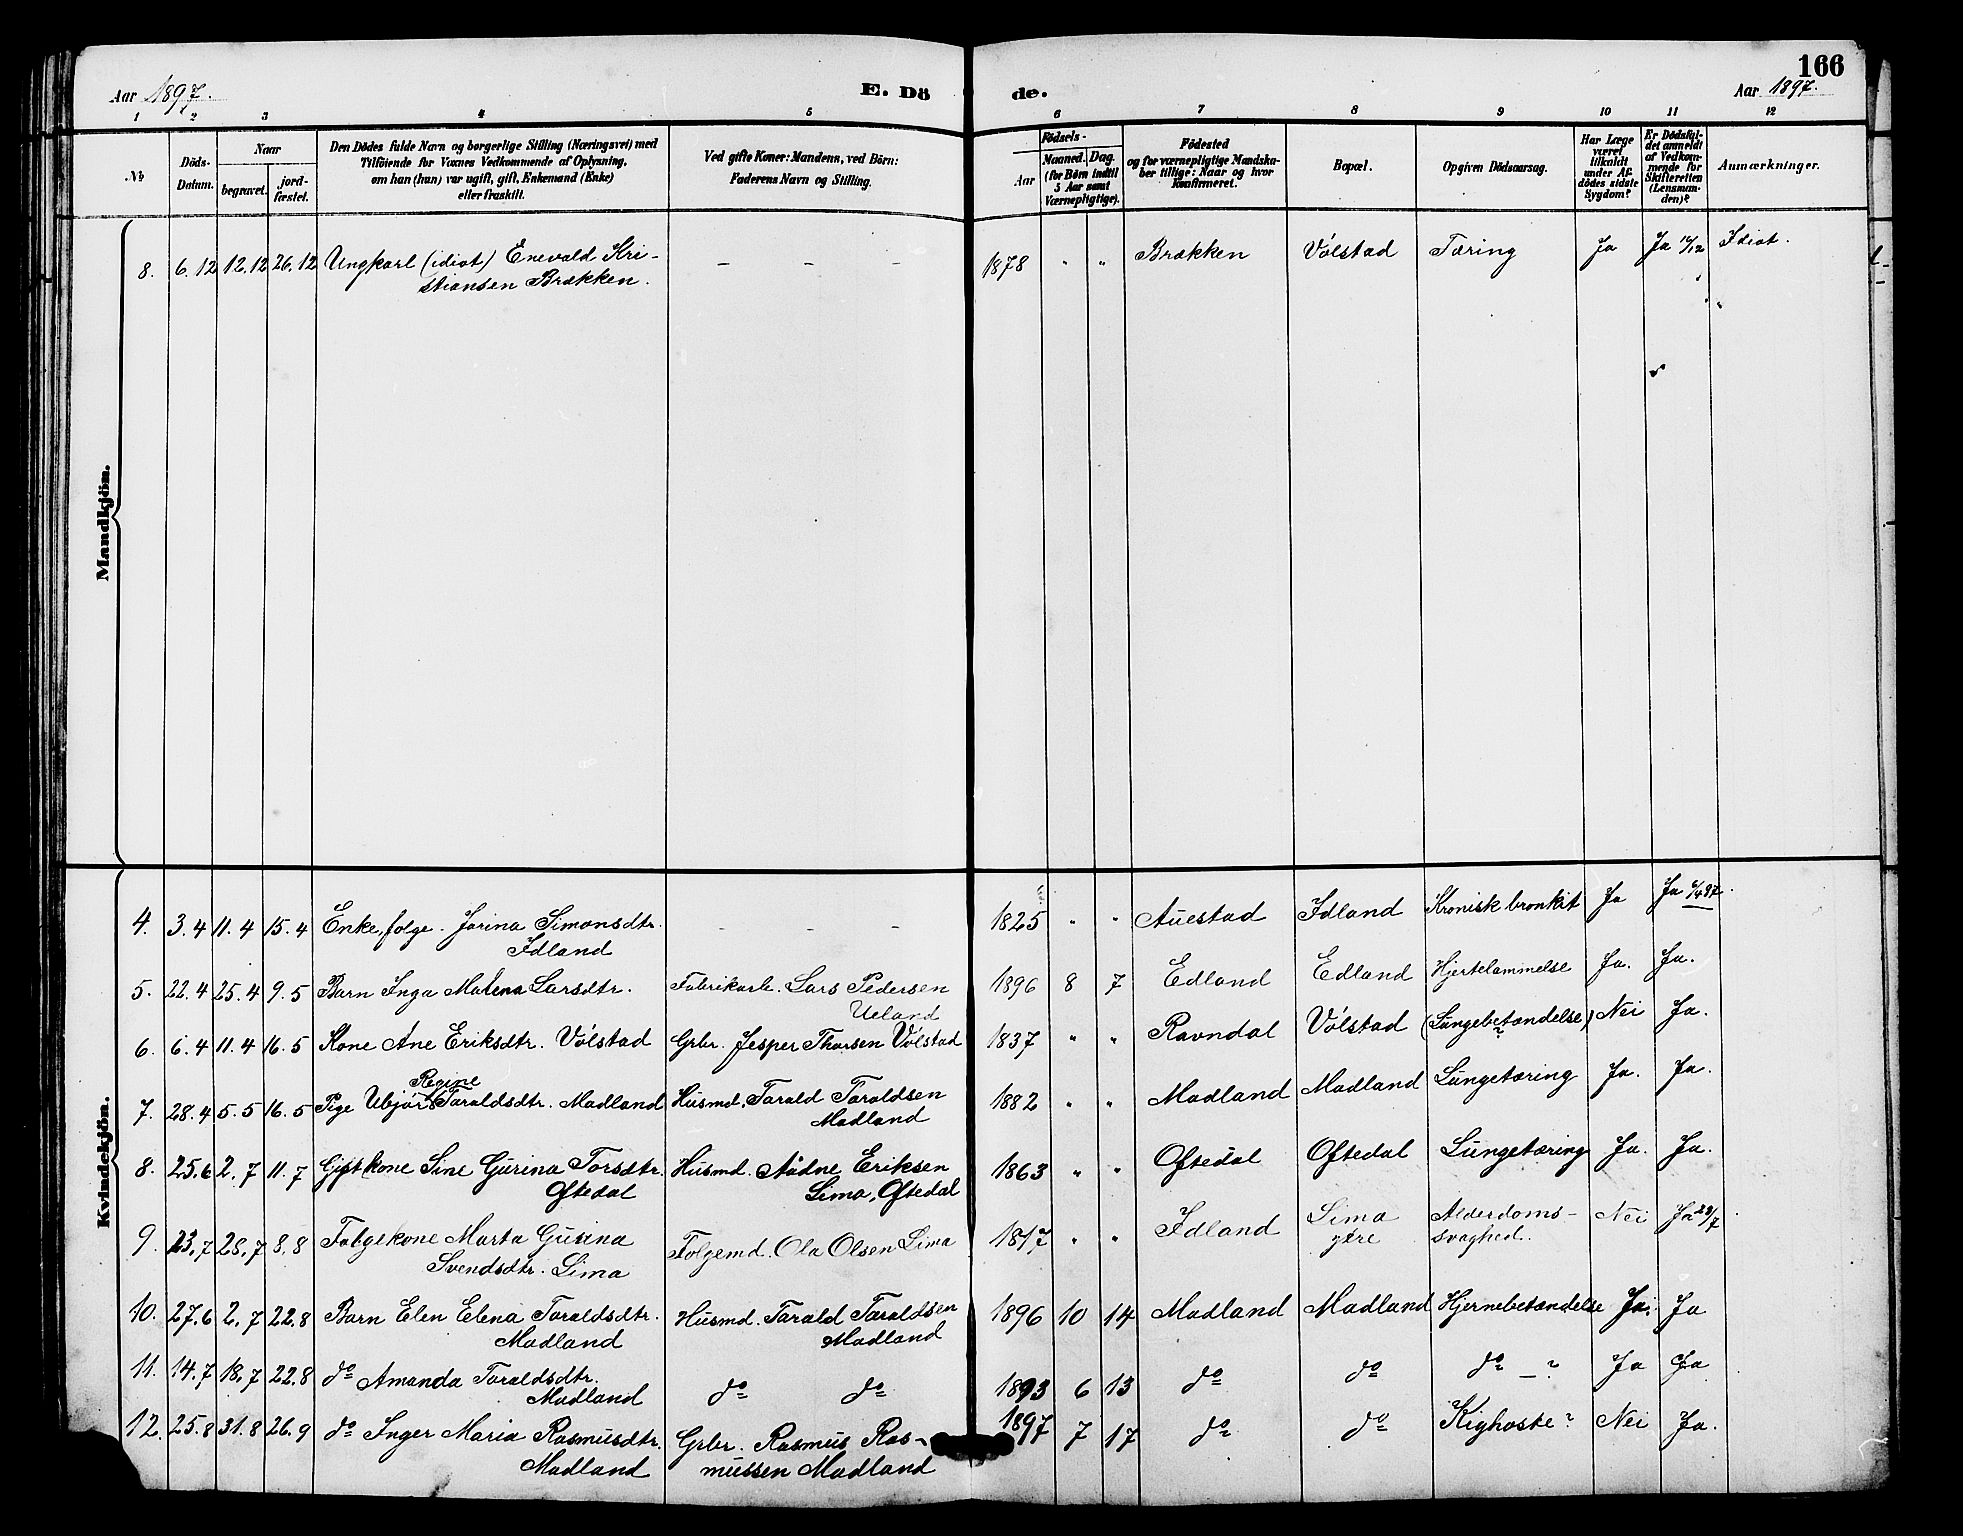 166
Aar 1897.
E. Dö
de.
Aar 1897.
1 2 3 4 5 6 7 8 9 10 11 12
№
Döds-
Datum.
Naar
begravet.
jord-
fæstet.
Den Dödes fulde Navn og borgerlige Stilling (Næringsvei) med
Tilföiende for Voxnes Vedkommende af Oplysning,
om han (hun) var ugift, gift, Enkemand (Enke)
eller fraskilt.
Ved gifte Koner: Mandens, ved Börn:
Faderens Navn og Stilling.
Födsels-
Aar
Maaned. Dag.
(for Börn indtil
5 Aar samt
Værnepligtige).
Födested
og for værnepligtige Mandska-
ber tillige: Naar og hvor
Konfirmeret.
Bopæl.
Opgiven Dödsaarsag.
Har Læge
været
tilkaldt
under Af-
dödes sidste
Sygdom?
Er Dödsfal-
det anmeldt
af Vedkom-
mende for
Skifteretten
(Lensman-
den)?
Anmærkninger.
Mandkjön.
8. 6.12 12.12 26.12 Ungkarl (idiot) Enevald Kri- – – – 1878 " " Brækken Vólstad Tæring Ja Ja 12/12 Idiot.
stiansen Brækken.
Kvindekjön.
4. 3.4 11.4 15.4 Enke, folge. Jorina Simonsdtr. – – – 1825 " " Auestad Idland Kronisk bronkit Ja Ja 6/4 97.
Idland
5. 22.4 25.4 9.5 Barn Inga Malena Larsdtr. Fabrikarb. Lars Pedersen 1896 8 7 Edland Edland Hjertelammelse Ja. Ja.
Ueland
6. 6.4 11.4 16.5 Kone Ane Eriksdtr. Vólstad Grbr. Jesper Thorsen Vólstad 1837 " " Ravndal Vólstad (Lungebetændelse) ? Nei Ja.
Regine
7. 28.4 5.5 16.5 Pige Ubjør Taraldsdtr. Madland Husmd. Tarald Taraldsen 1882 " " Madland Madland Lungetæring Ja. Ja.
Madland
8. 25.6 2.7 11.7 Gift kone Sine Gurina Torsdtr. Husmd. Aadne Eriksen 1863 " " Oftedal Oftedal Lungetæring Ja. Ja.
Oftedal Lima, Oftedal
9. 23.7 28.7 8.8 Folgekone Marta Gusina Folgemd. Ola Olsen Lima 1817 " " Idland Lima Alderdoms- Nei Ja 29/7
Svendsdtr. Lima ytre svaghed.
10. 27.6 2.7 22.8 Barn Elen Elena Taraldsdtr. Husmd. Tarald Taraldsen 1896 10 14 Madland Madland Hjernebetændelse Ja. Ja
Madland Madland
11. 14.7 18.7 22.8 do Amanda Taraldsdtr. do do 1893 6 13 do do do – ? Ja Ja
Madland
12. 25.8 31.8 26.9 do Inger Maria Rasmusdtr. Grbr. Rasmus Ras- 1897 7 17 do do Kighoste? Nei Ja.
Madland mussen Madland